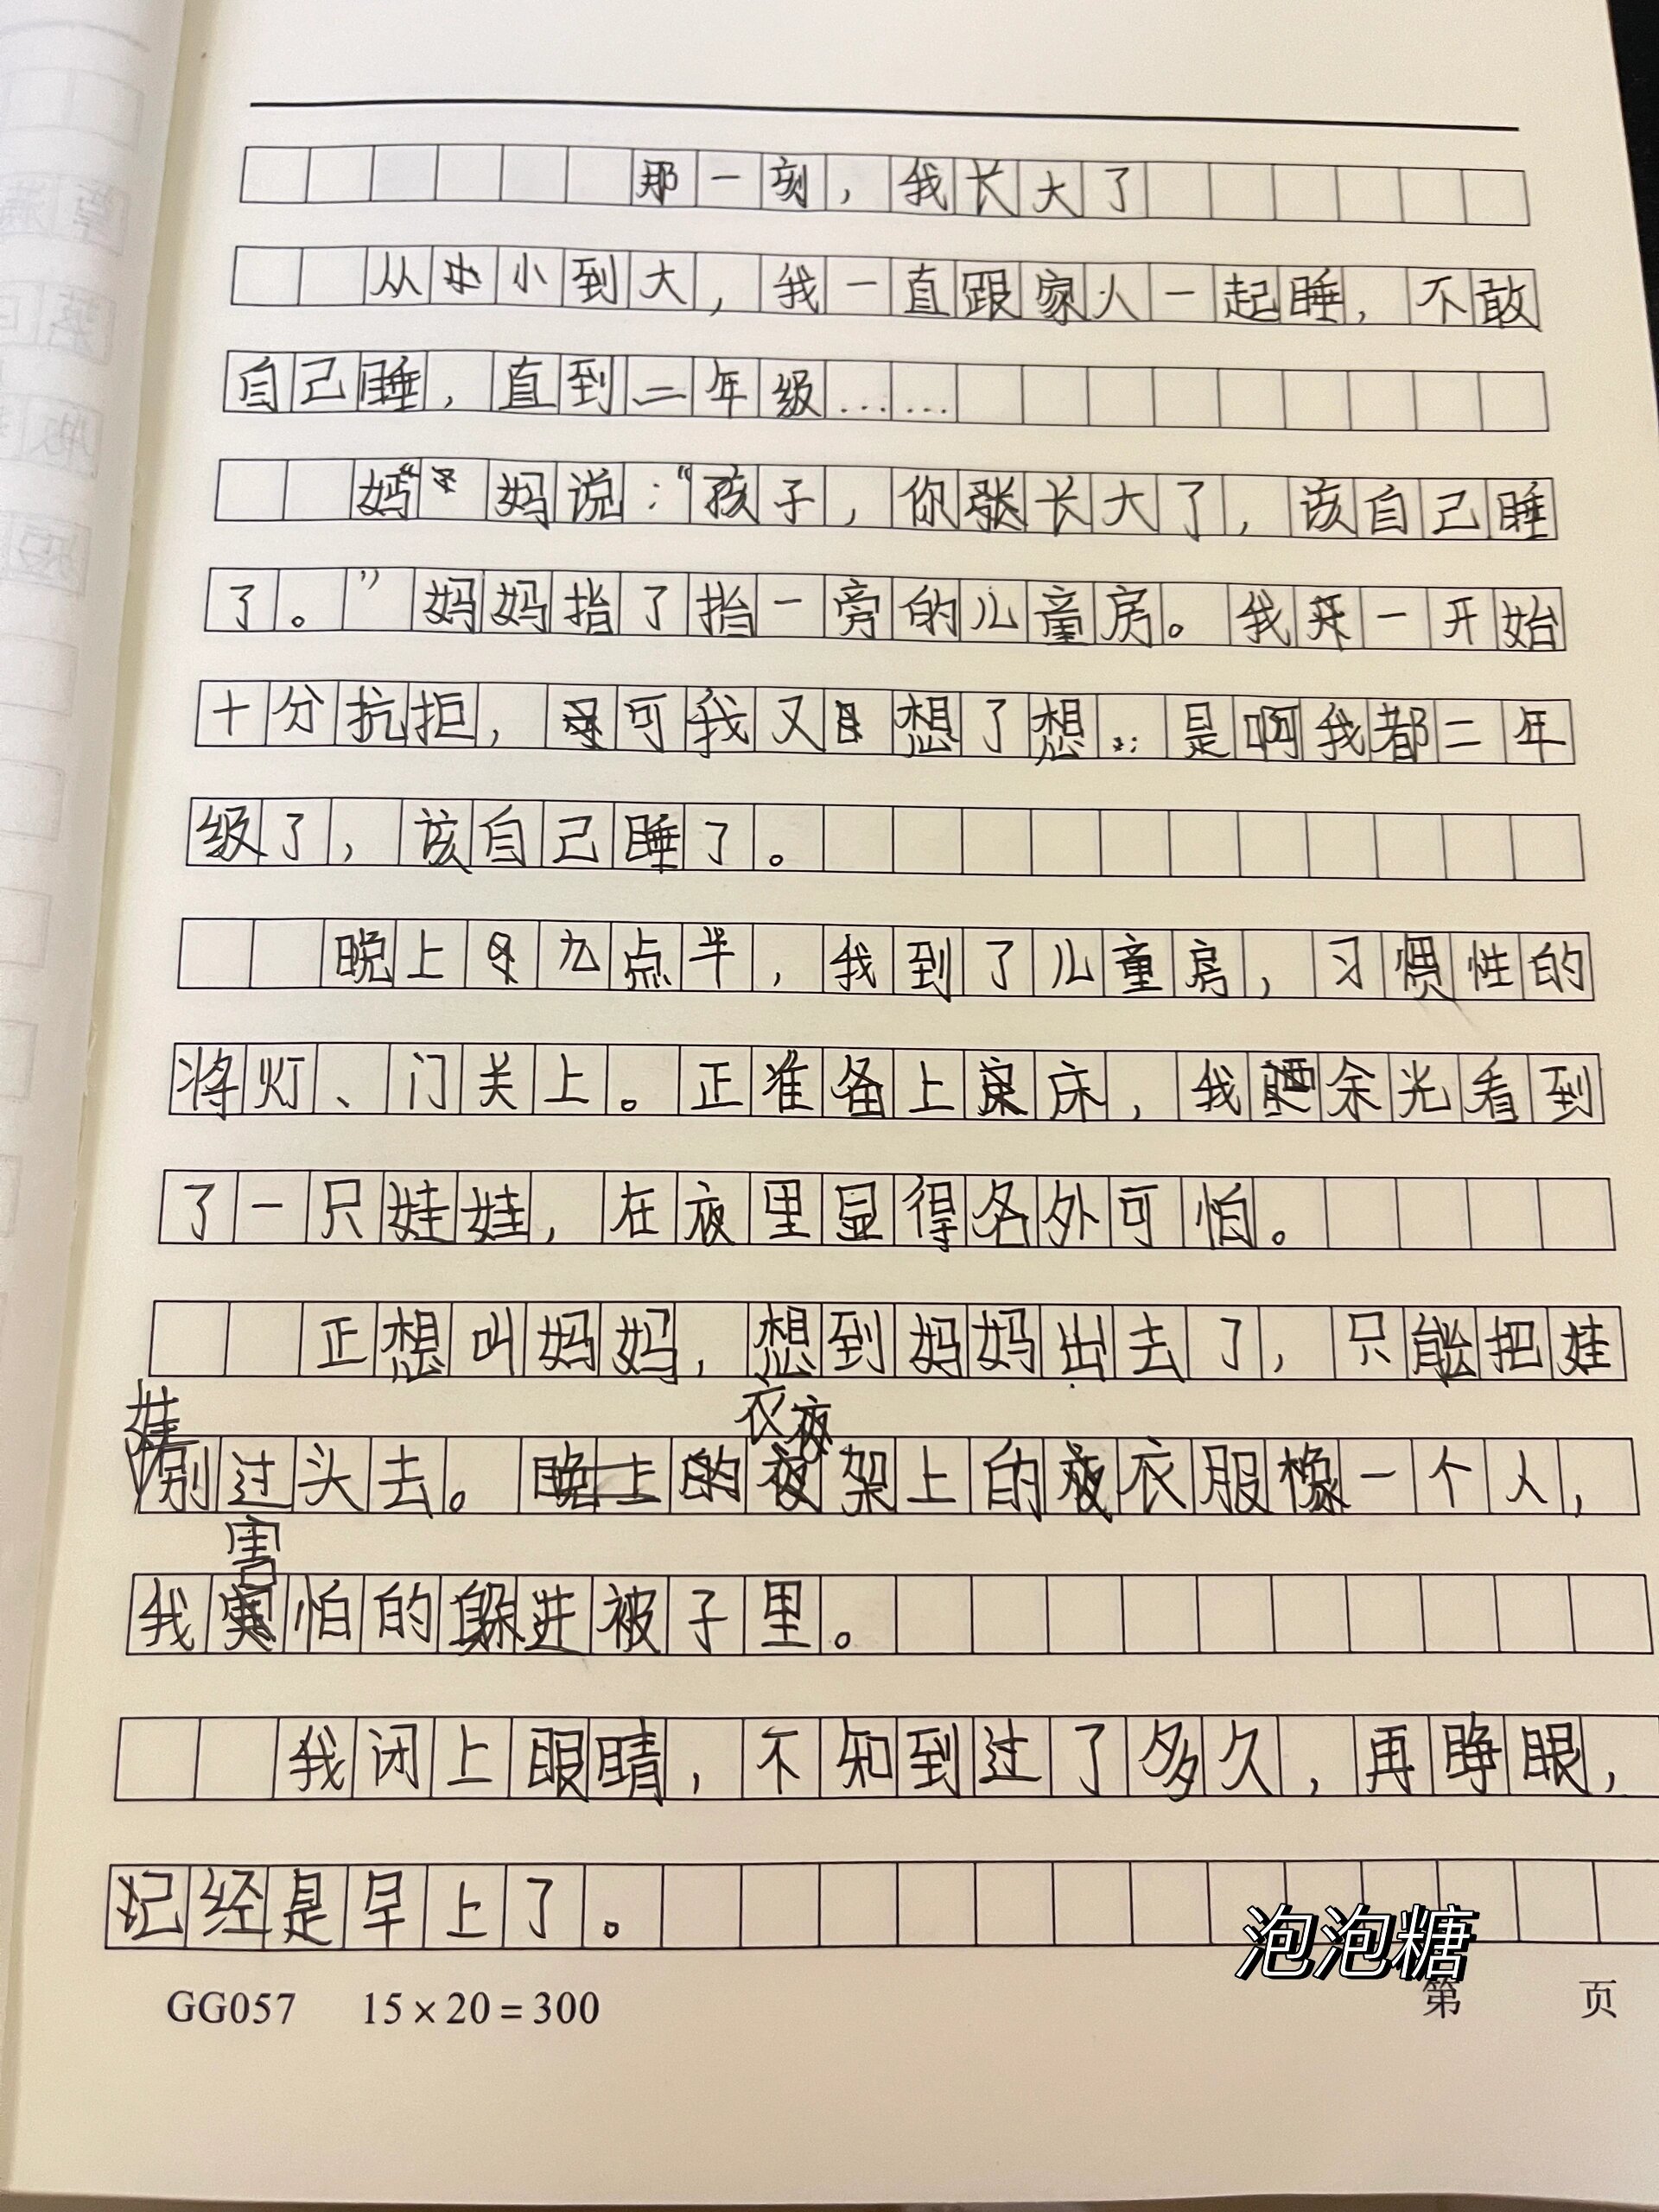 那一刻，我长大了
从小到大，我一直跟家人一起睡，不敢
自己睡，直到二年级……
妈妈说：“孩子，你长大了，该自己睡
了。”妈妈指了指一旁的儿童房。我一开始
十分抗拒，可我又想了想…是啊我都二年
级了，该自己睡了。
晚上九点半，我到了儿童房，习惯性的
将灯、门关上。正准备上床，我余光看到
了一只娃娃，在夜里显得各外可怕。
正想叫妈妈，想到妈妈出去了，只能把娃
娃别过头去。衣架上的衣服橡一个人，
我害怕的躲进被子里。
我闭上眼睛，不知到过了多久，再睁眼，
记经是早上了。
泡泡糖
GG057 15×20=300 第 页